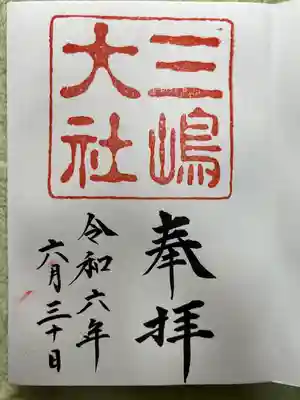 三嶋
大社
奉拝
令和六年
六月三十日